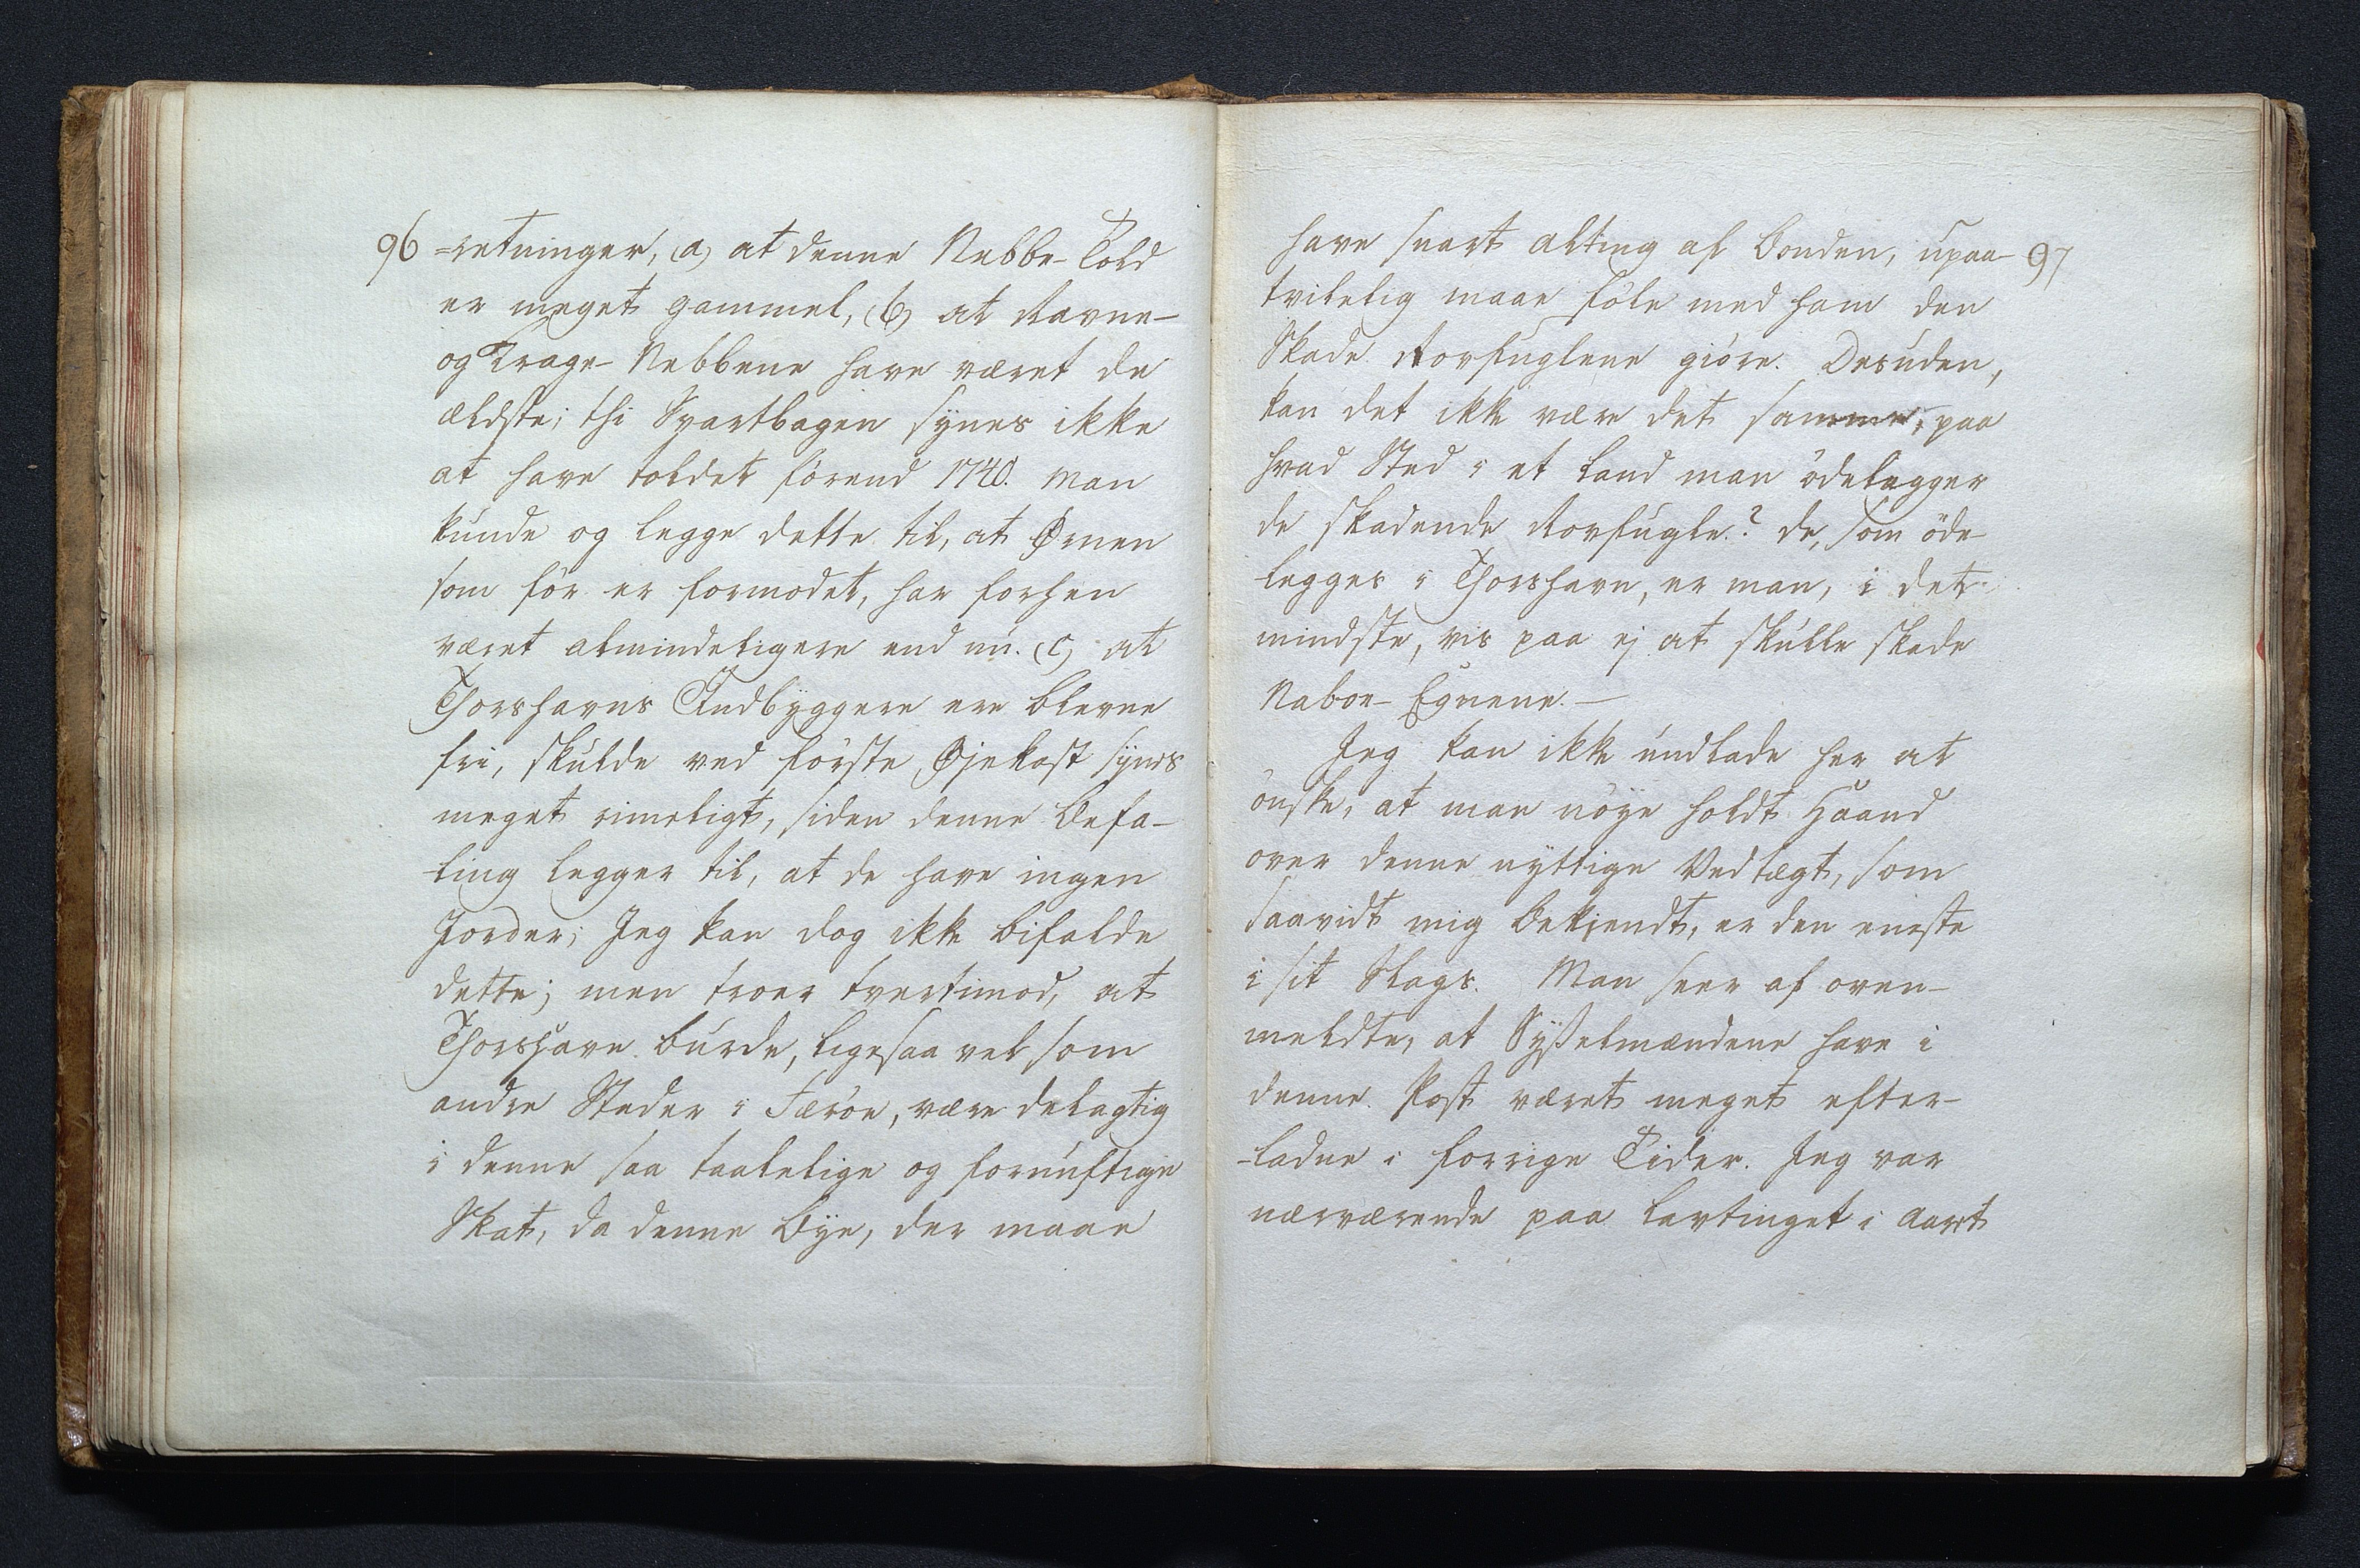 96
=retninger, (a) at denne Nebbe-Told
er meget gammel, (b) at Ravne-
og Krage-Nebbene have været de
ældste; thi Svartbagen synes ikke
at have toldet förend 1740. Man
kunde og legge dette til, at Ørnen
som för er formodet, har forhen
været almindeligere end nu. (c) at
Thorshavns Indbyggere ere blevne
fri, skulde ved förste Øjekast synes
meget rimeligt, siden denne Befa-
ling legger til, at de have ingen
Jorder; Jeg kan dog ikke bifalde
dette; men troer tvertimod, at
Thorshavn burde, ligesaa vel som
andre Steder i Færöe, være delagtig
i denne saa taalelige og fornuftige
Skat, da denne Bye, der maae
97
have snart alting af Bonden, upaa-
tvilelig maae föle med ham den
Skade Rovfuglene giöre. Desuden,
kan det ikke være det samme, paa
hvad Sted i et Land man ödelegger
de skadende Rovfugle? de, som öde-
legges i Thorshavn, er man, i det
mindste, vis paa ej at skulle skade
Naboe-Egnene.—
Jeg kan ikke undlade her at
önske, at man nöye holdt Haand
over denne nyttige Vedtægt, som
saavidt mig bekjendt, er den eneste
i sit Slags. Man seer af oven-
meldte, at Sysselmændene have i
denne Post været meget efter-
-ladne i forrige Tider. Jeg var
nærværende paa Lavtinget i Aaret